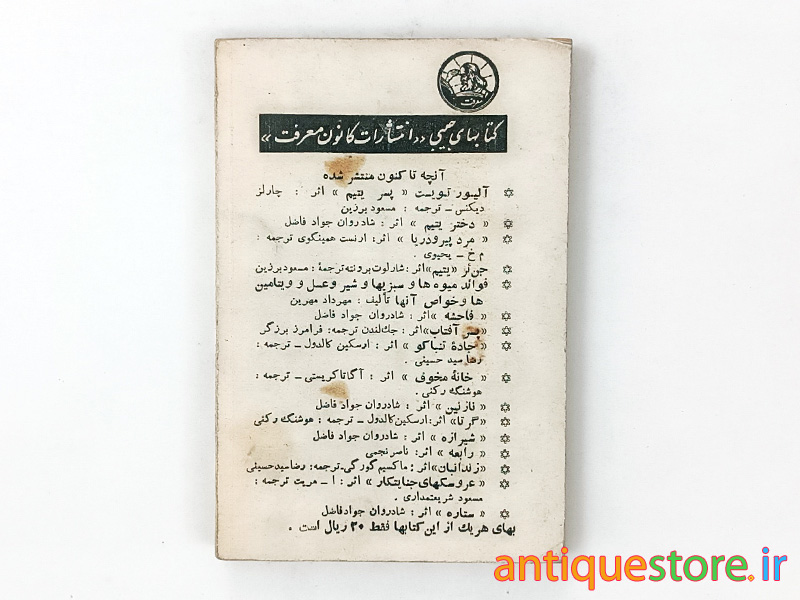 معرفت
کتابهای جیبی «انتشارات کانون معرفت»
آنچه تاکنون منتشر شده
✡ آلیور تویست « پسر یتیم » اثر : چارلز
دیکنس ـ ترجمه : مسعود برزین
✡ « دختر یتیم » اثر : شادروان جواد فاضل
✡ « مرد پیر و دریا » اثر : ارنست همینگوی ترجمه :
م خ ـ یحیوی .
✡ جن‌ئر «یتیم» اثر : شارلوت برونته ترجمهٔ : مسعود برزین
✡ فوائد میوه ها و سبزیها و شیر و عسل و ویتامین
ها و خواص آنها تألیف : مهرداد مهرین
✡ « فاحشه » اثر : شادروان جواد فاضل
✡ «پسر آفتاب» اثر : جک‌لندن ترجمه : فرامرز برزگر
✡ «جادهٔ تنباکو » اثر : ارسکین کالدول ـ ترجمه :
رضا سید حسینی .
✡ « خانهٔ مخوف » اثر : آگاتاکریستی ـ ترجمه :
هوشنگ رکنی .
✡ « نازنین » اثر : شادروان جواد فاضل
✡ « گرتا» اثر : ارسکین‌کالدول ـ ترجمه : هوشنگ رکنی
✡ « شیرازه » اثر : شادروان جواد فاضل
✡ « رابعه » اثر : ناصر نجمی
✡ «زندانبان» اثر : ماکسیم گورکی ـ ترجمه : رضا سید حسینی
✡ « عروسکهای جنایتکار » اثر : ا ـ مریت ترجمه :
مسعود شریعتمداری .
✡ « ستاره » اثر : شادروان جواد فاضل
بهای هریک از این کتابها فقط ۲۰ ریال است .
antiquestore.ir